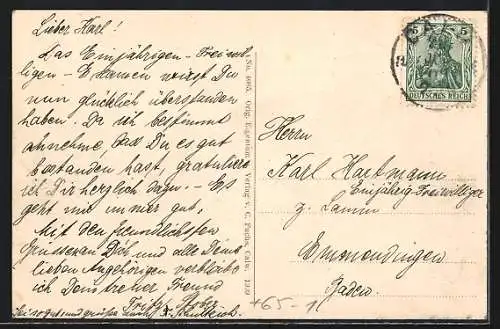 Lieber Karl!
Das Einjährigen-Freiwil-
ligen-Examen wirst Du
nun glücklich überstanden
haben. Da ich bestimmt
annehme, daß Du es gut
bestanden hast, gratuliere
ich Dir herzlich dazu. – Es
geht mir immer gut.
Mit den freundlichsten
Grüssen an Dich und alle Deine
lieben Angehörigen verbleibe
ich Dein treuer Freund
Fritz
No. 6085. Orig. Eigentum u. Verlag v. C. Fuchs, Calw. 1909
5 5
DEUTSCHES REICH
Herrn
Karl Hartmann
Einjährig-Freiwilliger
z. Lamm
Emmendingen
Baden.
+65-1